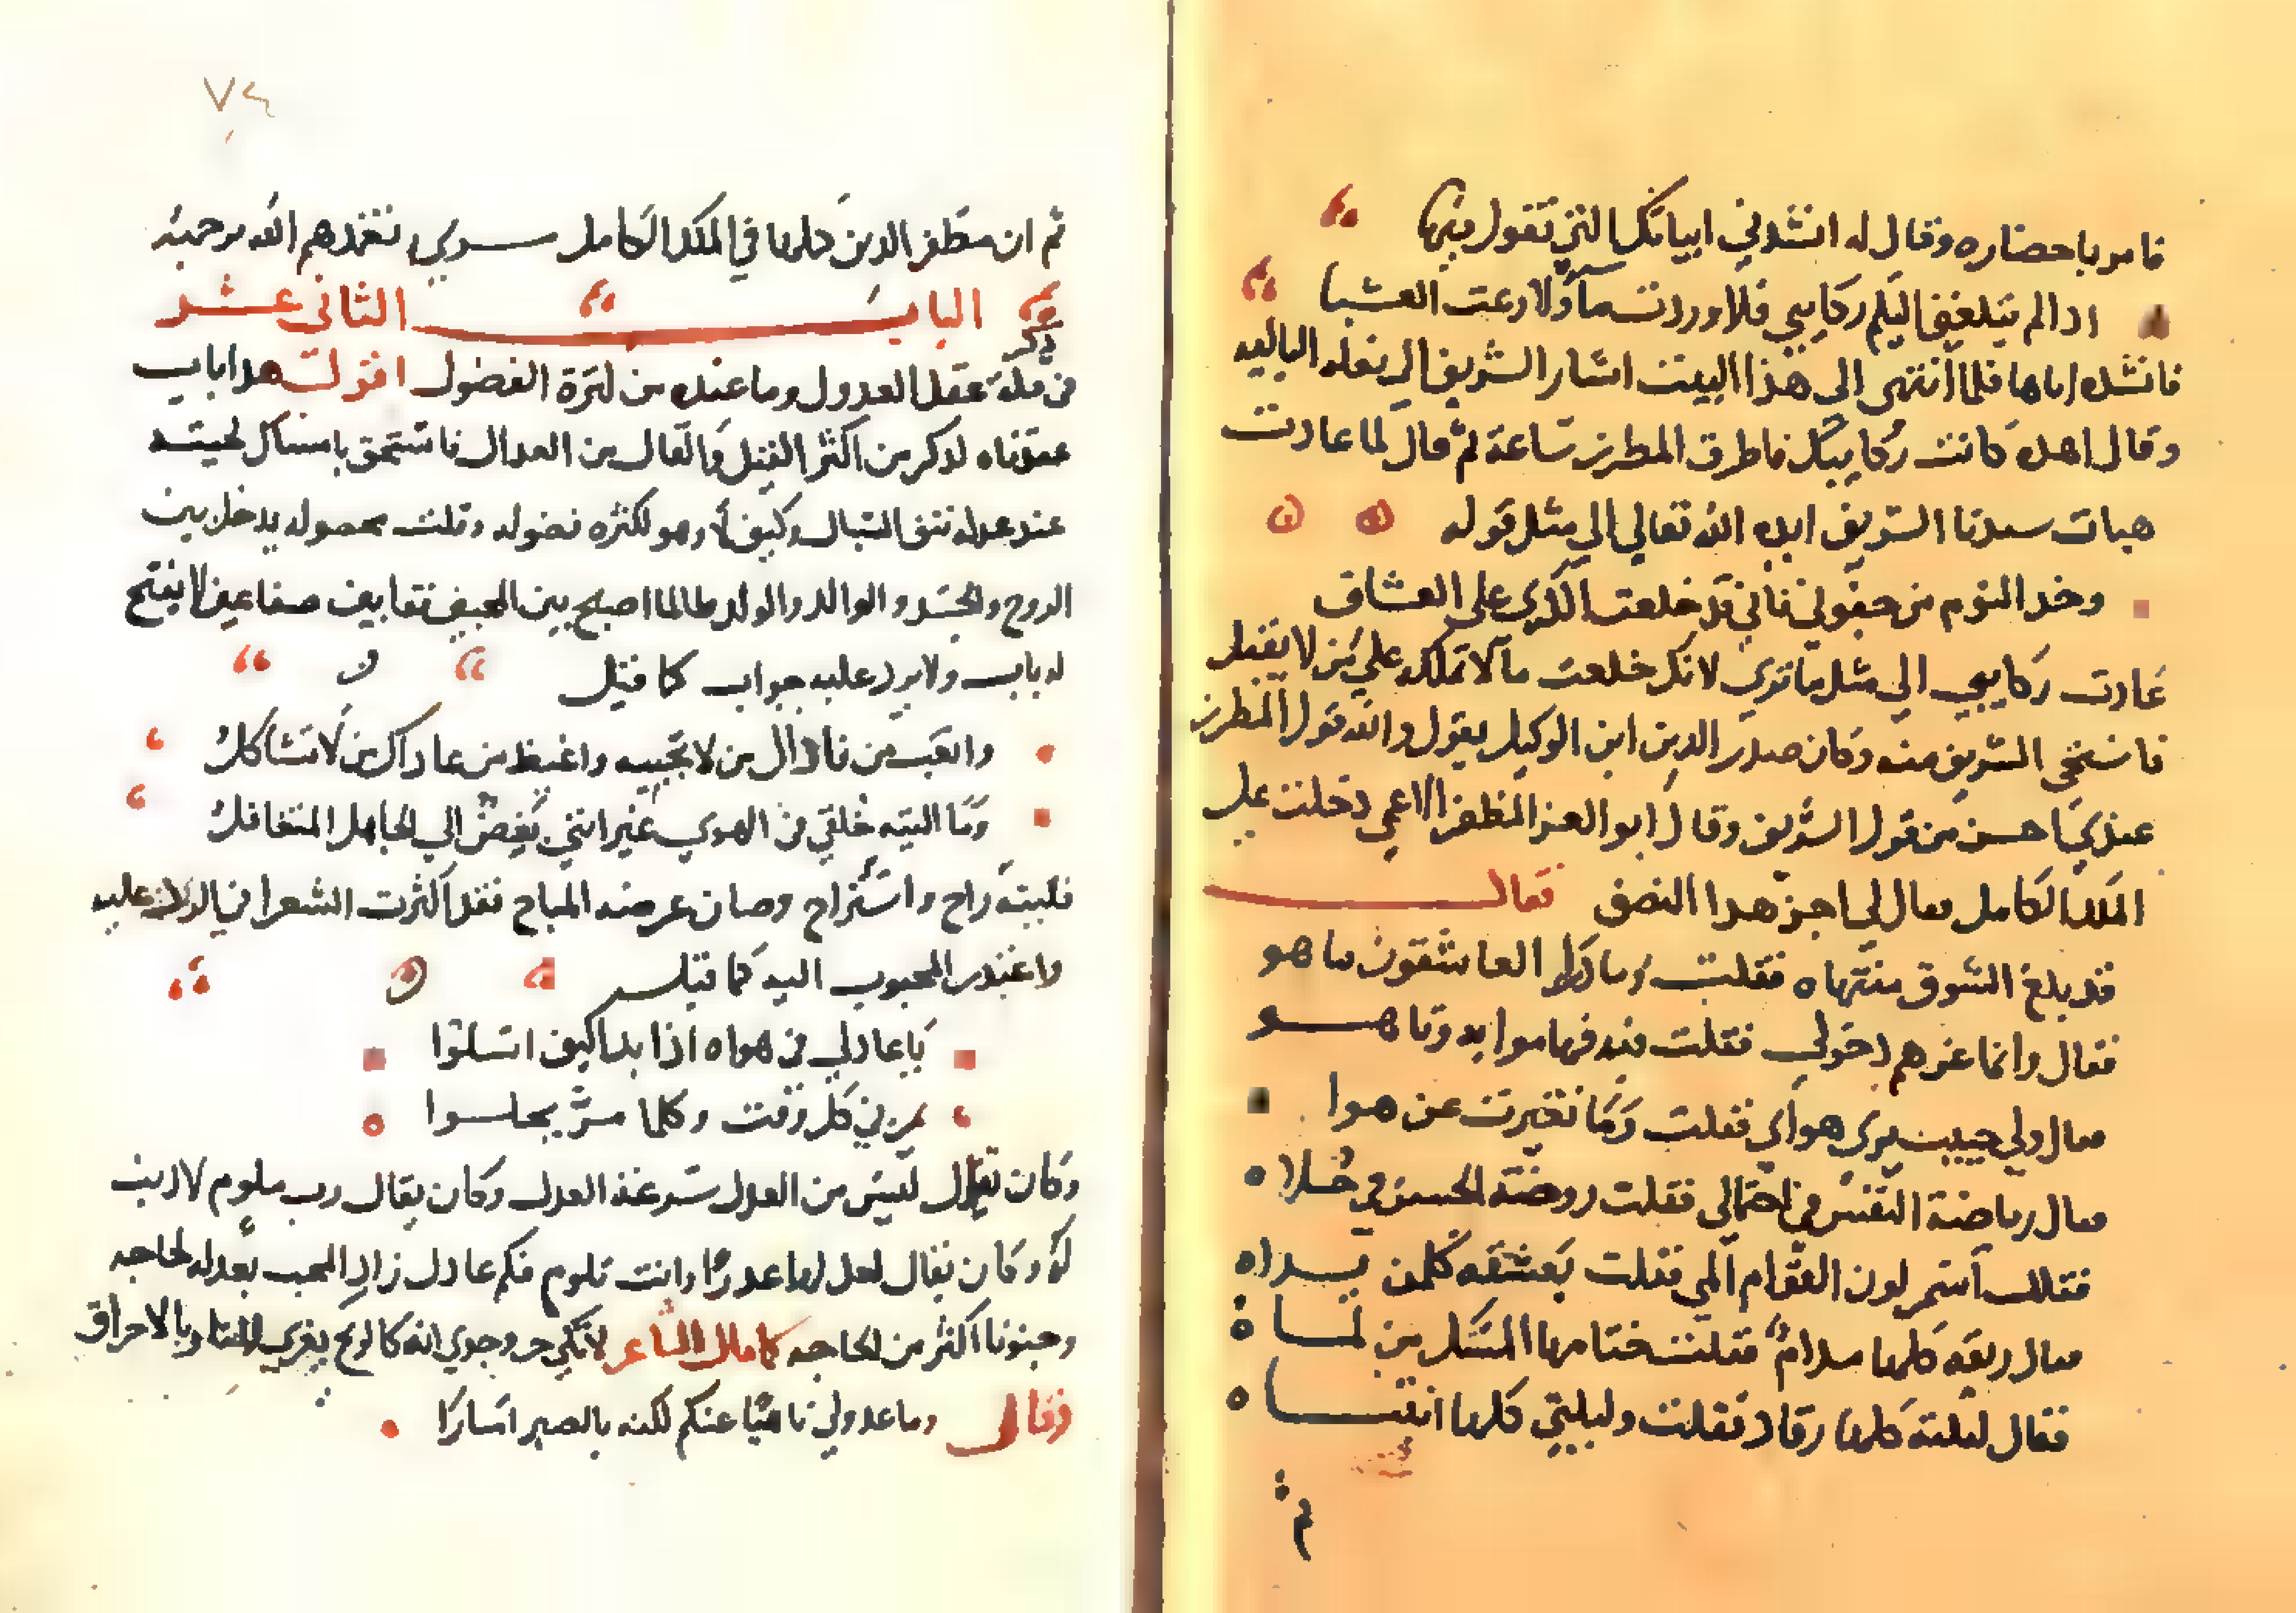 فامر باحضاره وقال له انشدني ابياتك التي تقول فيها
اذا لم تبلغني اليكم ركايبي فلا وردت مآ ولا رعت العشبا
فانشده اياها فلما انتهى الى هذا البيت اشار الشريف الى نعله الباليه
وقال اهذه كانت ركايبك فاطرق المطرز ساعة ثم قال لما عادت
هبات سيدنا الشريف ايده الله تعالي الي مثل قوله
وخذ النوم من جفوني فاني قد خلعت الكرى على العشاق
عادت ركايبي الي مثل ما ترى لانك خلعت ما لا تملكه علي من لا يقبل
فاستحى الشريف منه وكان صدر الدين ابن الوكيل يقول والله قول المطرز
عندي احسن من قول الشريف وقال ابو العز المظفر الاعمي دخلت علي
الملك الكامل فقال لي اجز هذا النصف فقال
قد بلغ الشوق منتهاه فقلت وما درا العاشقون ما هو
فقال وانما غرهم دخولي فقلت فيه فهاموا به وتاهو
فقال ولي حبيب يرى هواي فقلت وما تغيرت عن هوا
فقال رياضة النفس في احتمالي فقلت روضة الحسن في حلاه
فقلت اسمر لدن القوام المي فقلت يعشقه كلمن يراه
فقال ريقه كلها مدام فقلت ختامها المسك من لماه
فقال ليلته كلها رقاد فقلت وليلتي كلها انتباه
ثم
٧٤
ثم ان مظفر الدين كلها في الملك الكامل تغمدهم الله برحمته
الباب الثاني عشر
في ذكر قلة عقل العدول وما عنده من كثرة الفضول اقول هدا باب
عقدناه لدكر من اكثر القيل والقال من العدال فاستحق بامساك لحيته
عند عدله نتف السبال وكيف لا وهو لكثره فضوله وقلت محصوله يدخل بين
الروح والجسد والوالد والولد طالما اصبح بين المحبين لا يفتح
له باب ولا يرد عليه جواب كما قيل
واتعب من ناداك من لا تجيبه واغيظ من عاداك من لا تشاكل
وما التيه خلقي في الهوي غير انني بغيض الي الجاهل المتغافل
فليته راح واستراح وصان عرضه المباح فقد اكثرت الشعرا في الرد عليه
واعتدر المحبوب اليه كما قيل
يا عادلي في هواه اذا بدا كيف اسلوا
يمر بي كل وقت وكلما مر يحلوا
وكان يقال ليس من العدل سرعة العدل وكان يقال رب ملوم لا ذنب
له وكان يقال لعل لها عدرا وانت تلوم فكم عادل زاد المحب بعدله لجاجه
وجنونا اكثر من لجاجه كما قال الشاعر
فقال وما عدولي ناهيا عنكم لكنه بالصبر امارا